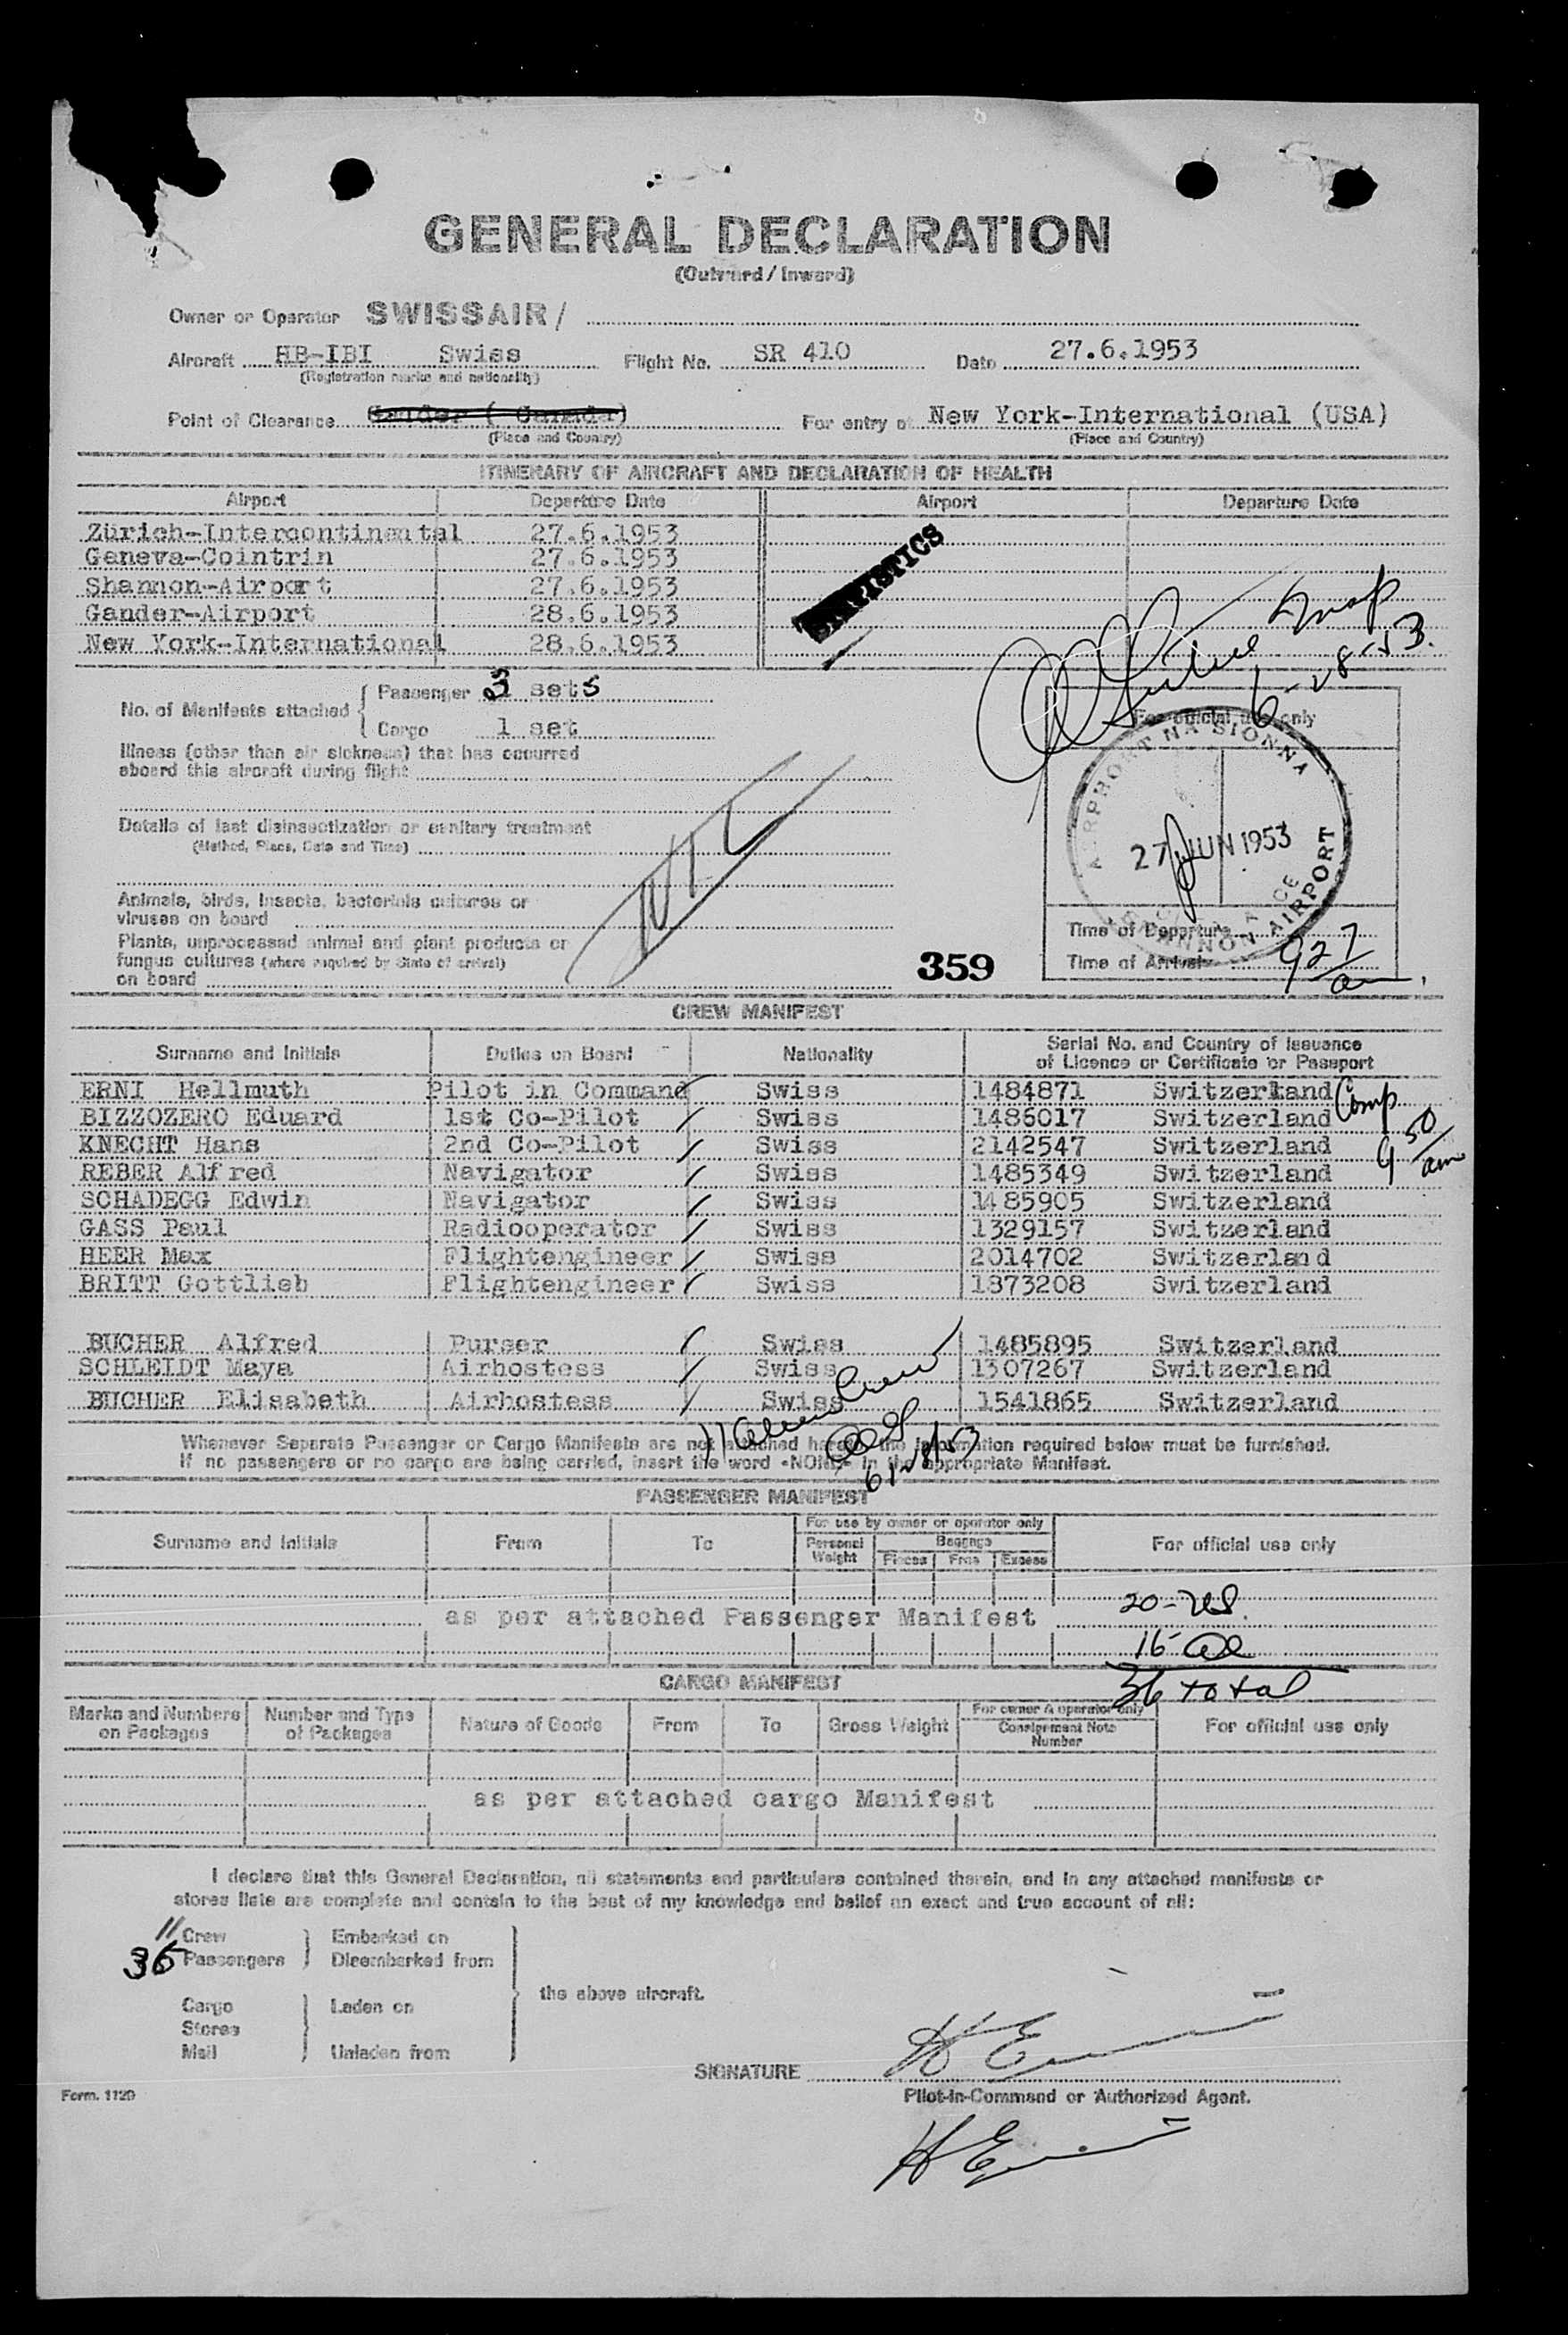 GENERAL DECLARATION
(Outward / Inward)
Owner or Operator SWISSAIR /
Aircraft HB-IBI Swiss Flight No. SR 410 Date 27.6.1953
(Registration marks and nationality)
Point of Clearance Gander ( Canada) For entry at New York-International (USA)
(Place and Country) (Place and Country)
ITINERARY OF AIRCRAFT AND DECLARATION OF HEALTH
Airport Departure Date Airport Departure Date
Zürich-Intercontinental 27.6.1953
Geneva-Cointrin 27.6.1953
Shannon-Airport 27.6.1953
Gander-Airport 28.6.1953
New York-International 28.6.1953
STATISTICS
6-28-53.
No. of Manifests attached
Passenger 3 sets
Cargo 1 set
For official use only
Illness (other than air sickness) that has occurred
aboard this aircraft during flight
Details of last disinsectization or sanitary treatment
(Method, Place, Date and Time)
NIL
AERPHORT NA SIONNA
27 JUN 1953
SHANNON AIRPORT
Animals, birds, insects, bacterials cultures or
viruses on board
Plants, unprocessed animal and plant products or
fungus cultures (where required by State of arrival)
on board
359
Time of Departure
Time of Arrival 927 am
CREW MANIFEST
Surname and Initials Duties on Board Nationality Serial No. and Country of Issuance
of Licence or Certificate or Passport
ERNI Hellmuth Pilot in Command Swiss 1484871 Switzerland Comp
BIZZOZERO Eduard 1st Co-Pilot Swiss 1486017 Switzerland
KNECHT Hans 2nd Co-Pilot Swiss 2142547 Switzerland 9 50 am
REBER Alfred Navigator Swiss 1485349 Switzerland
SCHADEGG Edwin Navigator Swiss 1485905 Switzerland
GASS Paul Radiooperator Swiss 1329157 Switzerland
HEER Max Flightengineer Swiss 2014702 Switzerland
BRITT Gottlieb Flightengineer Swiss 1873208 Switzerland
BUCHER Alfred Purser Swiss 1485895 Switzerland
SCHLEIDT Maya Airhostess Swiss 1307267 Switzerland
BUCHER Elisabeth Airhostess Swiss 1541865 Switzerland
11 alien Crew
6/28/53
Whenever Separate Passenger or Cargo Manifests are not attached hereto, the information required below must be furnished.
If no passengers or no cargo are being carried, insert the word «NONE» in the appropriate Manifest.
PASSENGER MANIFEST
Surname and Initials From To For use by owner or operator only For official use only
Personal Weight Baggage
Pieces Free Excess
20- US.
as per attached Passenger Manifest
16- al
36 total
CARGO MANIFEST
Marks and Numbers on Packages Number and Type of Packages Nature of Goods From To Gross Weight For owner & operator only Consignment Note Number For official use only
as per attached cargo Manifest
I declare that this General Declaration, all statements and particulars contained therein, and in any attached manifests or
stores lists are complete and contain to the best of my knowledge and belief an exact and true account of all:
11 Crew Embarked on
36 Passengers Disembarked from
the above aircraft.
Cargo Laden on
Stores
Mail Unladen from
SIGNATURE H Erni
Form. 1129 Pilot-in-Command or Authorized Agent.
H Erni